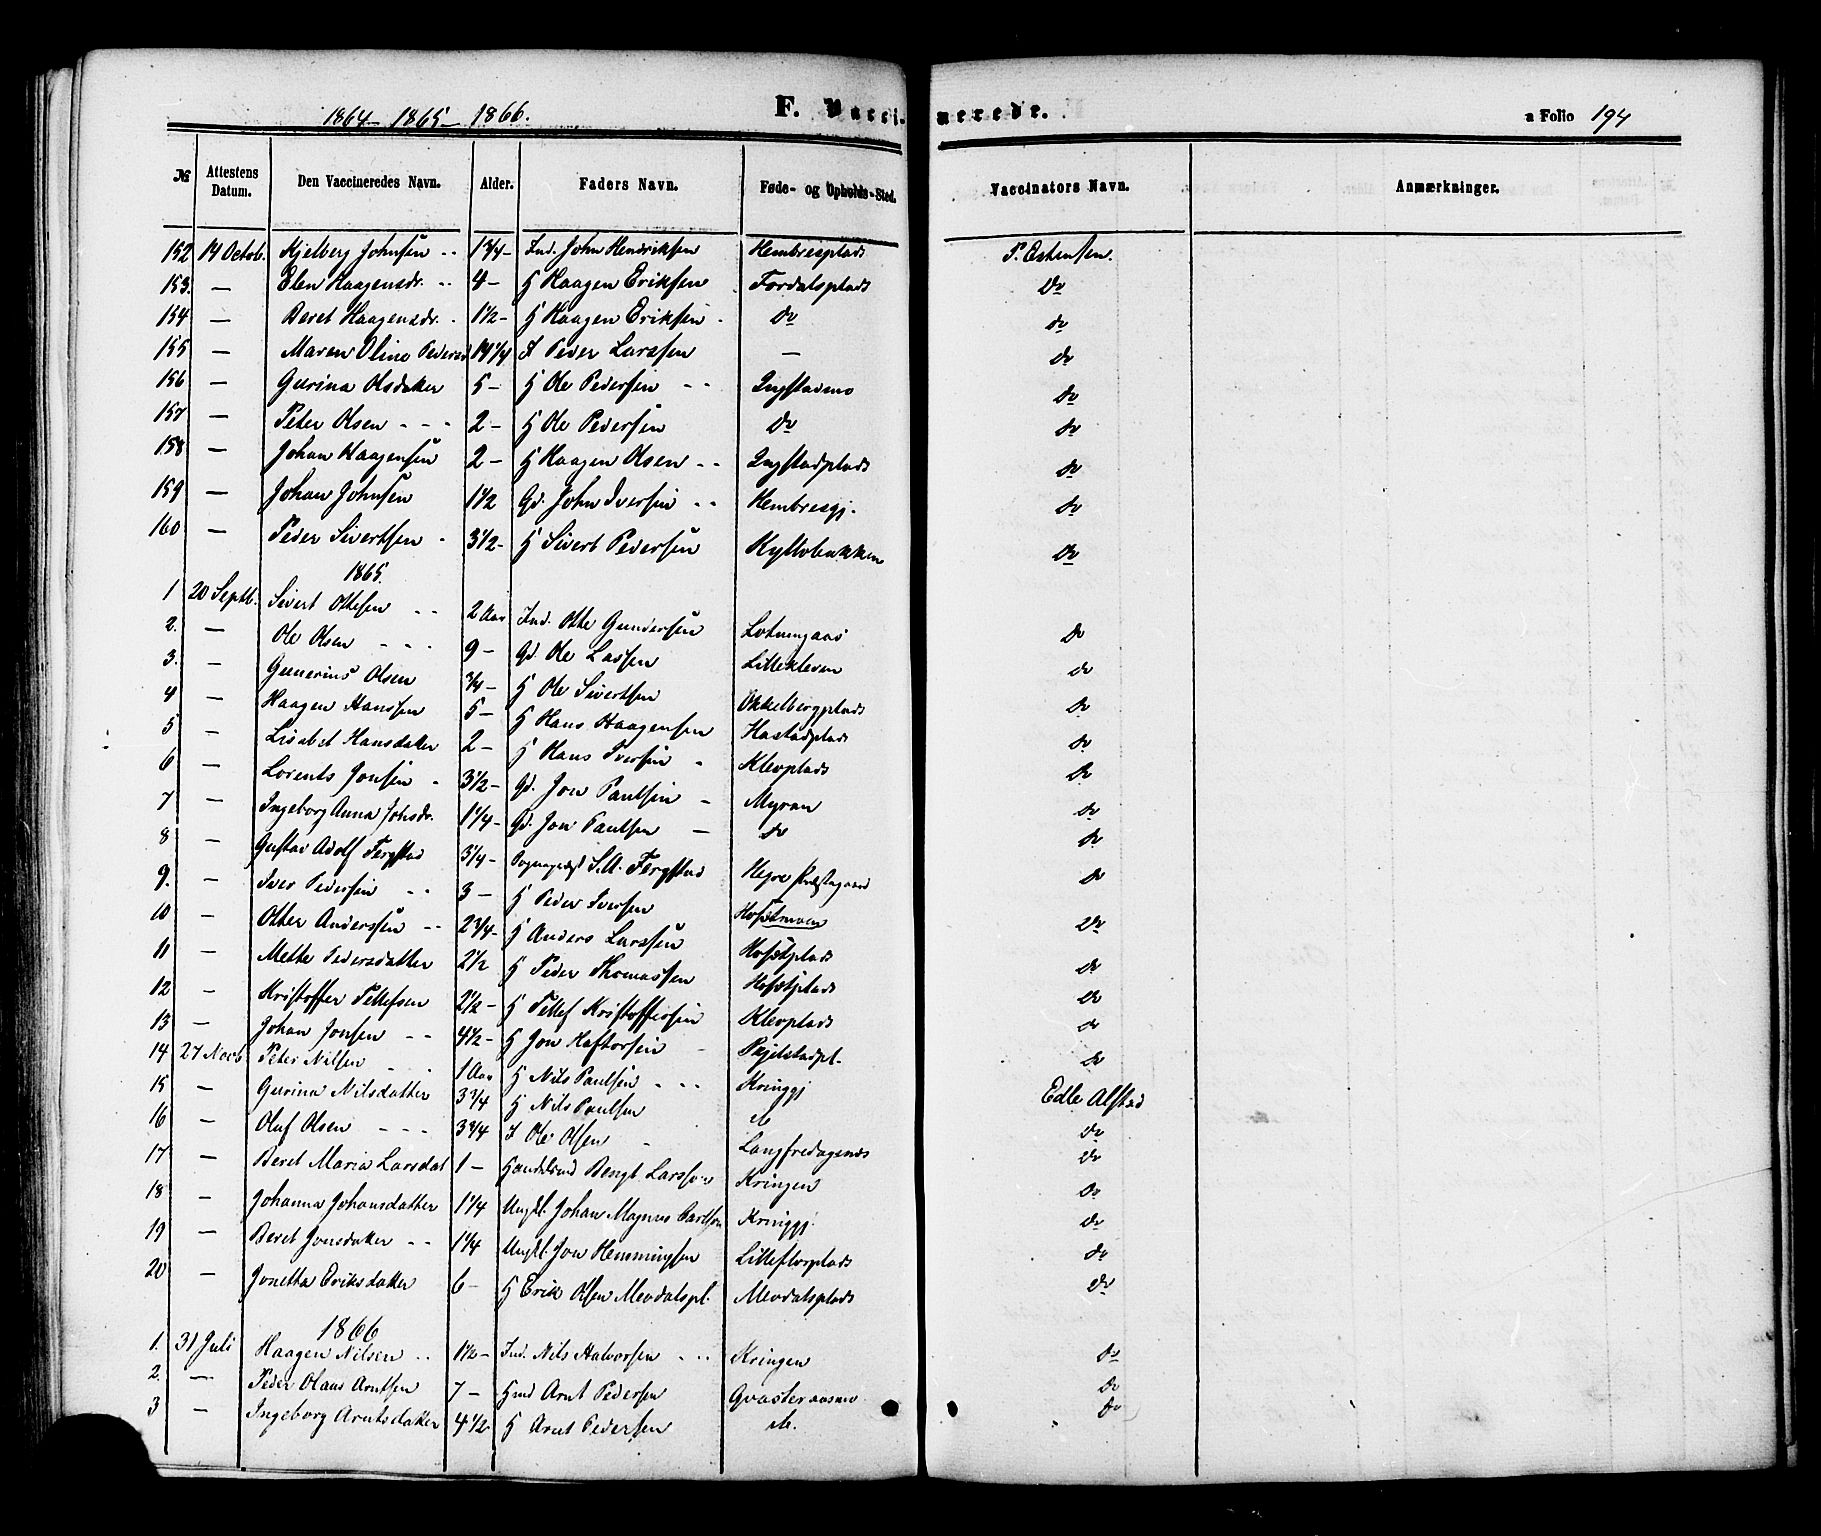 1864 - 1865 - 1866. F. Vaccinerede. a Folio 194
№ Attestens Datum. Den Vaccineredes Navn. Alder. Faders Navn. Føde- og Opholds-Sted. Vaccinators Navn. Anmærkninger.
152 14 Octob. Kjelberg Johnsen 1 3/4 - Ind. John Hendriksen Hembresplads P. Estensen.
153. — Elen Haagensdr. 4 - H Haagen Eriksen Fordalsplads Do
154 — Beret Haagensdr. 1 1/2 - H Haagen Eriksen do do
155 — Maren Oline Pedersd 14 1/4 I Peder Larssen — do
156 — Gurina Olsdatter 5 - H Ole Pedersen Ingstadmo do
157 — Peter Olsen 2 - H Ole Pedersen do do
158 — Johan Haagensen 2 - H Haagen Olsen Ingstadplads do
159 — Johan Johnsen 1 1/2 Gd. John Iversen Hembresgj. do
160 — Peder Sivertsen 3 1/2 - H Sivert Pedersen Kyllobakken do
1865.
1 20 Septb. Sivert Ottesen 2 Aar Ind. Otte Gundersen do
2. — Ole Olsen 9 - Gd. Ole Lassen Lillekleven do
3. — Gunerius Olsen 3/4 - H Ole Sivertsen Okkelbergplads do
4 — Haagen Hanssen 5 - H Hans Haagensen Hastadplads do
5 — Lisabet Hansdatter 2 - H Hans Iversen Klevplads do
6 — Lorents Jonsen 3 1/2 - Gd. Jon Paulsen Myran do
7 — Ingeborg Anna Johsdr. 1 1/4 - Gd. Jon Paulsen — do do
8 — Gustav Adolf Fergstad 3 1/4 - Sognepræst S. A. Fergstad Hegre Præstegaard do
9. — Iver Pedersen 3 - H Peder Iversen Hofstmoen do
10 — Otter Anderssen 2 3/4 - H Anders Larssen Hofstplads do
11 — Mette Pedersdatter 2 1/2 H Peder Thomassen Hofstplads do
12 — Kristoffer Tellefsen 2 1/2 - H Tellef Kristoffersen Klevplads do
13 — Johan Jonsen 4 1/2 - H Jon Haftorsen Skjelstadpl. do
14 27 Novb Peter Nilsen 1 Aar H Nils Paulsen Kringgj do
15 — Gurina Nilsdatter 3 3/4 H Nils Paulsen do Edle Alstad
16 — Oluf Olsen 3 3/4 I Ole Olsen Langfredagenæs do
17 — Beret Maria Larsdat 1 - Handelsmd Bengt Larsson Kringen do
18 — Johanna Johansdatter 1 1/4 Ungkl. Johan Magnus Carlson Kringgj. do
19 — Beret Jonsdatter 1 1/4 Ungkl. Jon Hemmingsen Lillefloplads do
20 — Jonetta Eriksdatter 6 - H Erik Olsen Mevdalspl. Mevdalsplads do
1866
1. 31 Juli Haagen Nilsen 1 1/2 - Ind. Nils Halvorsen Kringen do
2. — Peder Olaus Arntsen 7 - Hmd Arnt Pedersen do
3 — Ingeborg Arntsdatter 4 1/2 - H Arnt Pedersen do. do